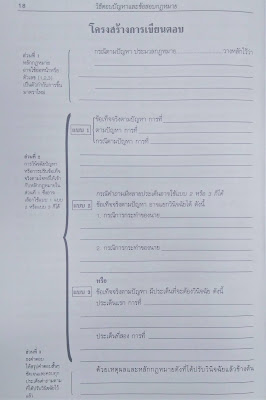 18 วิธีตอบปัญหาและข้อสอบกฎหมาย
โครงสร้างการเขียนตอบ
ส่วนที่ 1
หลักกฎหมาย
กรณีตามปัญหา ประมวลกฎหมาย วางหลักไว้ว่า
ส่วนที่ 2
แบบ 1
ข้อเท็จจริงตามปัญหา การที่
ตามปัญหา การที่
กรณีตามปัญหา
กรณีคำถามมีหลายประเด็นอาจใช้แบบ 2 หรือ 3 ก็ได้
แบบ 2
ข้อเท็จจริงตามปัญหา อาจแยกวินิจฉัยได้ ดังนี้
1. กรณีการกระทำของนาย
2. กรณีการกระทำของนาย
หรือ
แบบ 3
ข้อเท็จจริงตามปัญหา มีประเด็นที่จะต้องวินิจฉัย ดังนี้
ประเด็นแรก การที่
ประเด็นที่สอง การที่
ส่วนที่ 3
ด้วยเหตุผลและหลักกฎหมายดังที่ได้ปรับวินิจฉัยแล้วข้างต้น